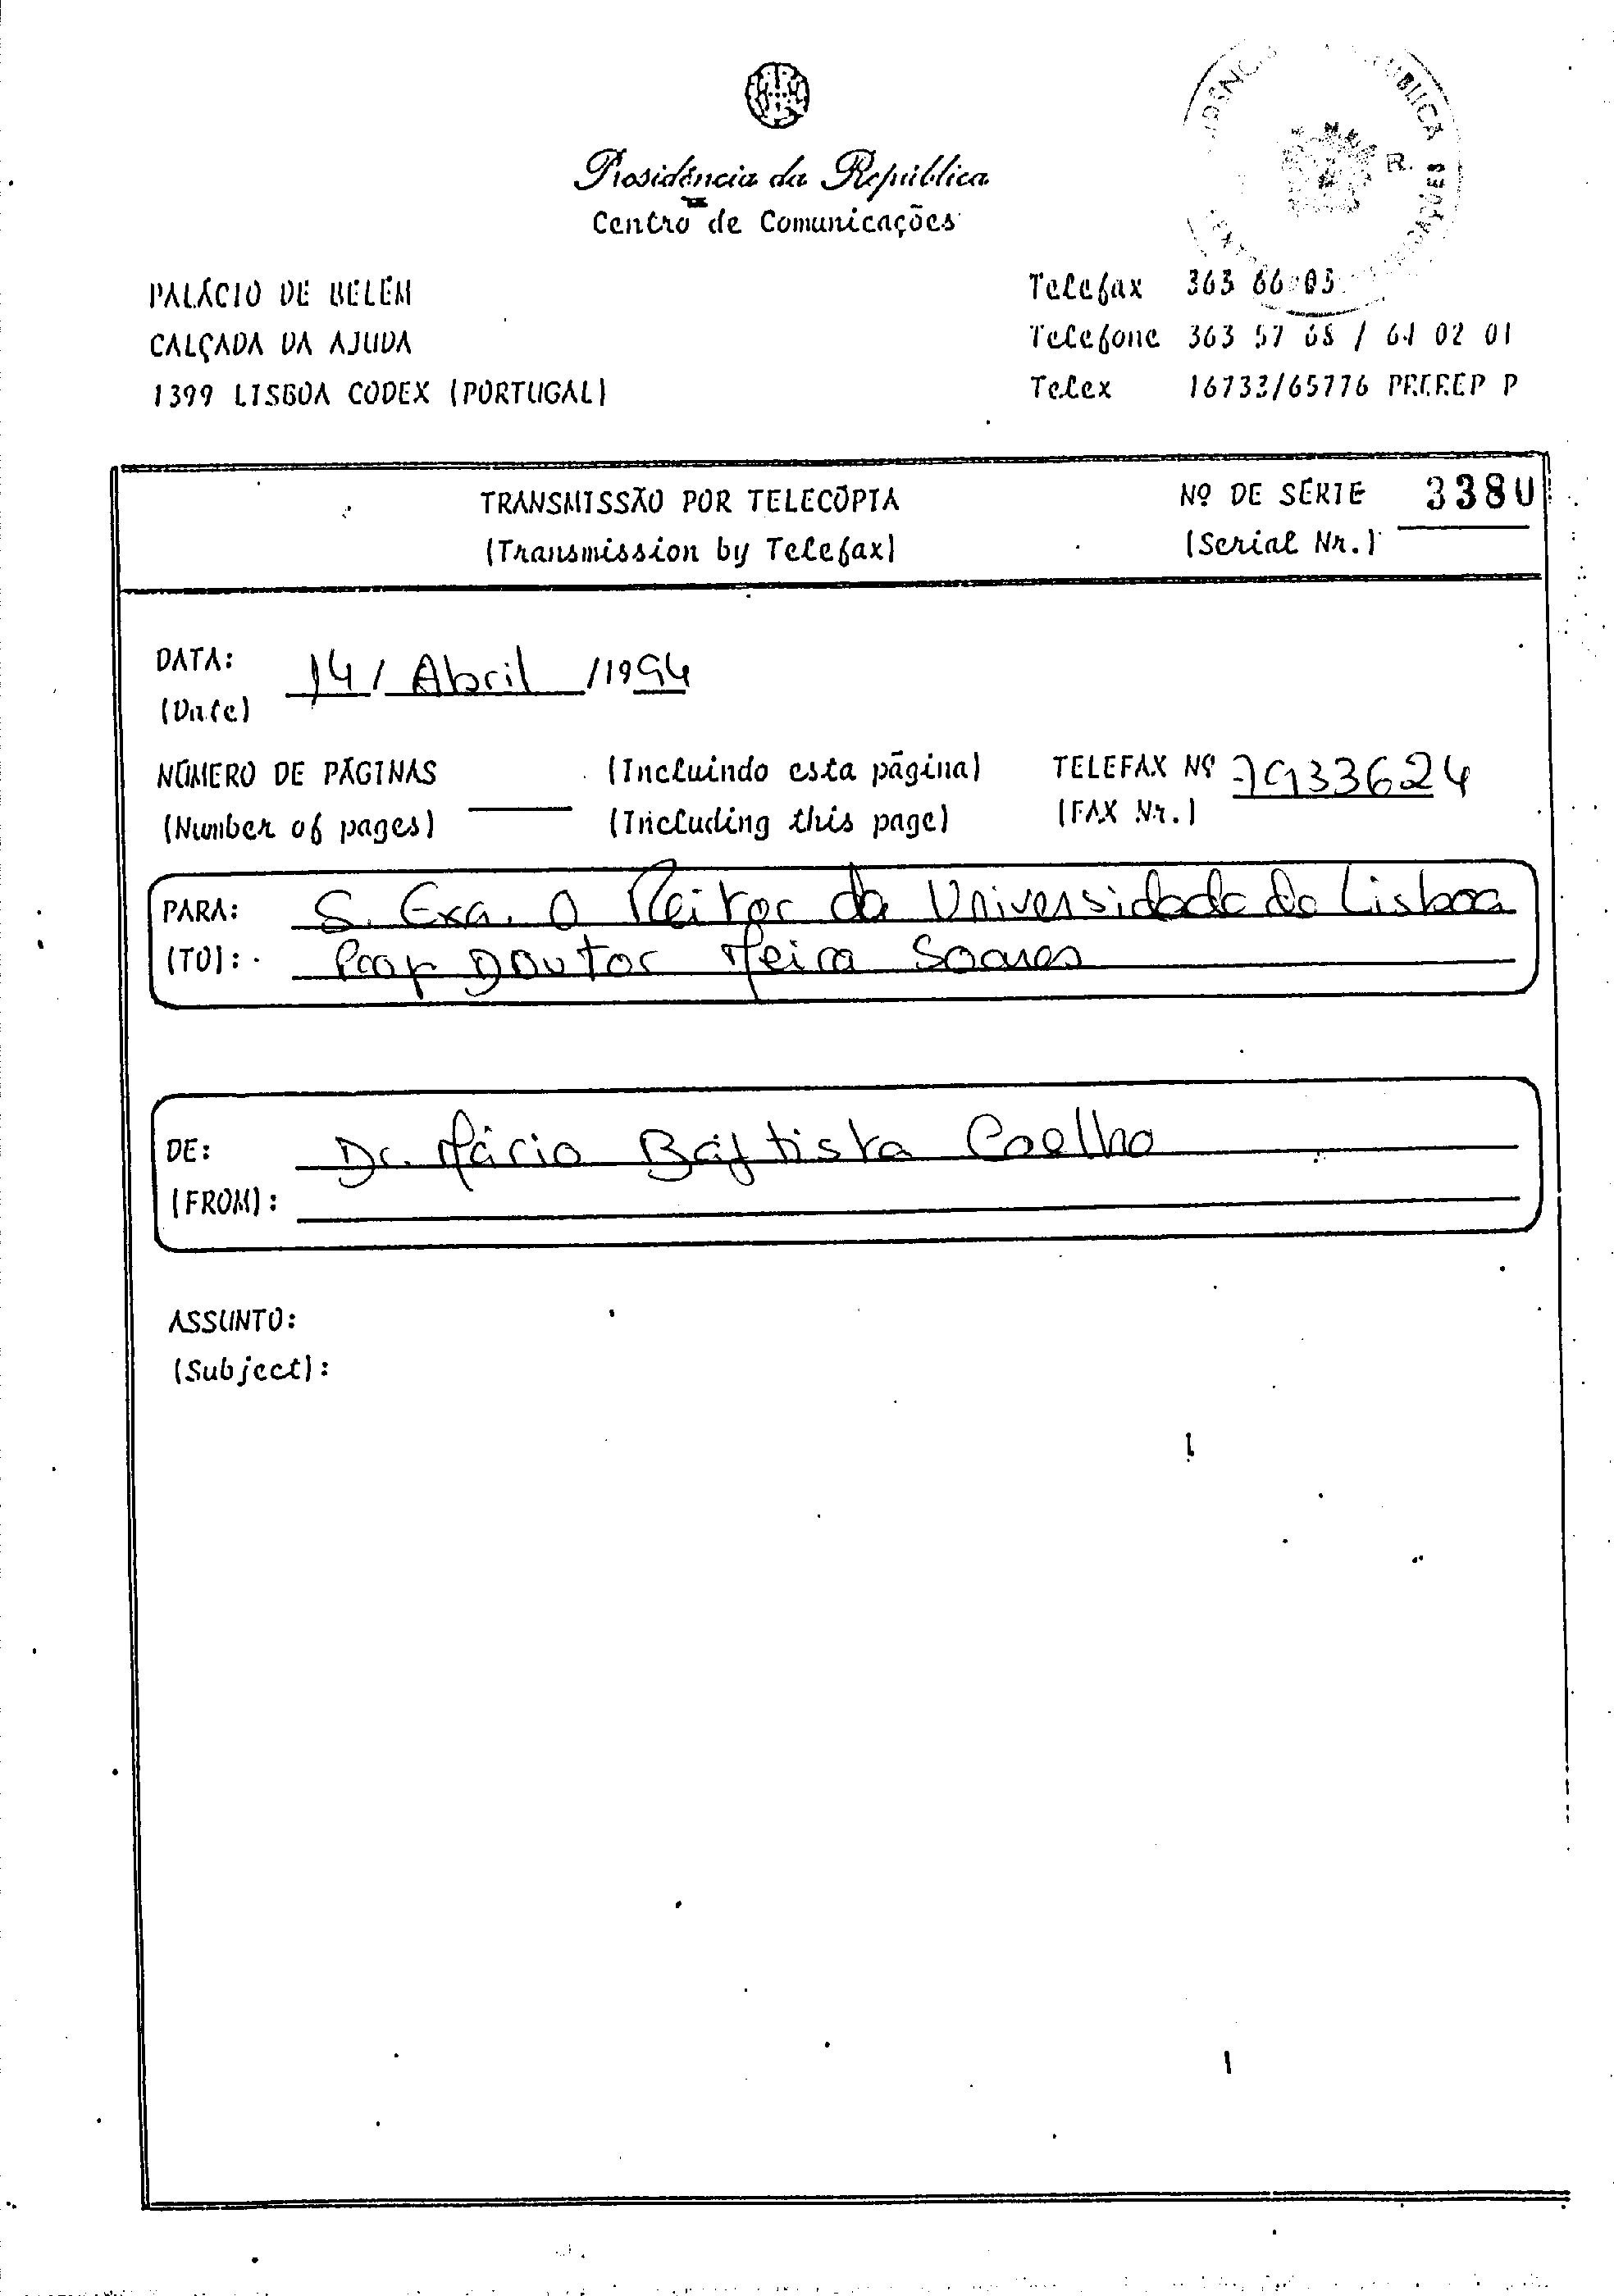 Presidência da República
Centro de Comunicações
PALÁCIO DE BELÉM
CALÇADA DA AJUDA
1399 LISBOA CODEX (PORTUGAL)
R.
Telefax 363 66 03
Telefone 363 57 68 / 64 02 01
Telex 16733/65776 P
TRANSMISSÃO POR TELECÓPIA
(Transmission by Telefax)
Nº DE SÉRIE 3380
(Serial Nr.)
DATA: 14 / Abril / 1994
(Date)
NÚMERO DE PÁGINAS (Incluindo esta página) TELEFAX Nº 7933624
(Number of pages) (Including this page) (FAX Nr.)
PARA: S. Exa. O Reitor da Universidade de Lisboa
(TO): Prof Doutor Meira Soares
DE: Dr. Mário Baptista Coelho
(FROM):
ASSUNTO:
(Subject):